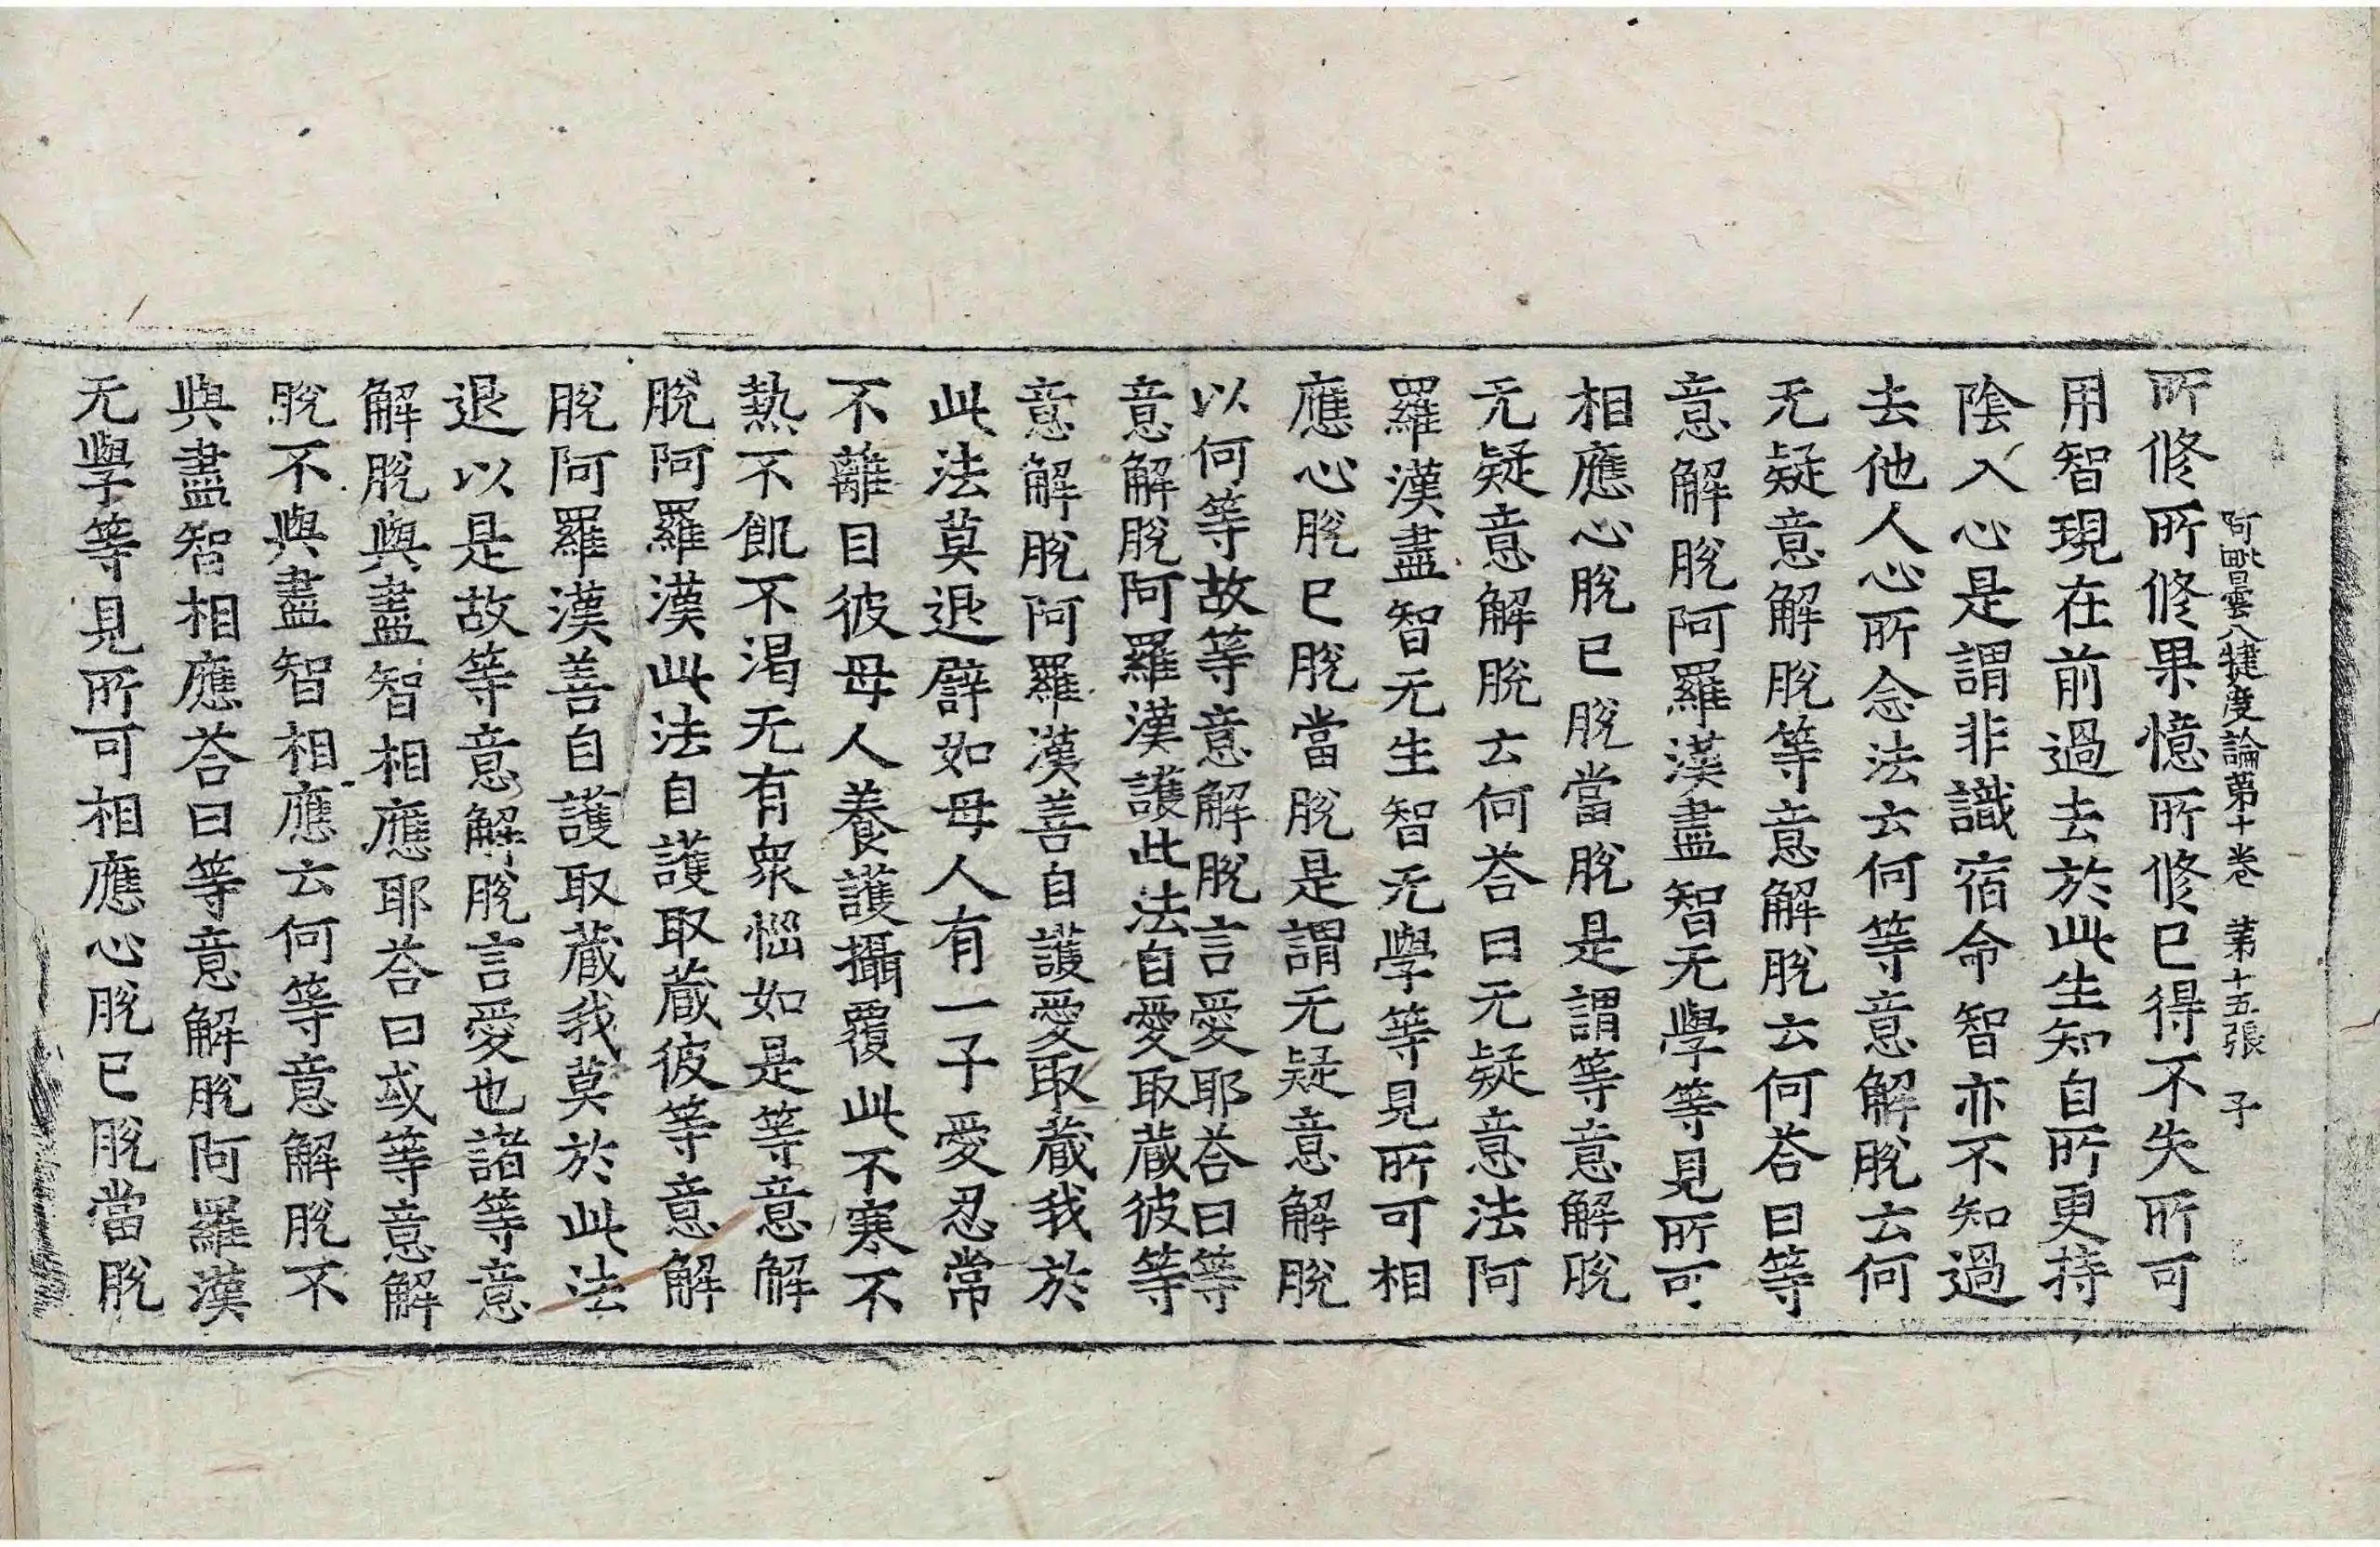 阿毗曇八犍度論第十卷 第十五張 子
所修所修果憶所修已得不失所可
用智現在前過去於此生知自所更持
陰入心是謂非識宿命智亦不知過
去他人心所念法云何等意解脫云何
无疑意解脫等意解脫云何荅曰等
意解脫阿羅漢盡智无學等見所可
相應心脫已脫當脫是謂等意解脫
无疑意解脫云何荅曰无疑意法阿
羅漢盡智无生智无學等見所可相
應心脫已脫當脫是謂无疑意解脫
以何等故等意解脫言愛耶荅曰等
意解脫阿羅漢護此法自愛取蔵彼等
意解脫阿羅漢善自護愛取蔵我於
此法莫退譬如母人有一子愛忍常
不離目彼母人養護攝覆此不寒不
熱不飢不渴无有衆惱如是等意解
脫阿羅漢此法自護取蔵彼等意解
脫阿羅漢善自護取蔵我莫於此法
退以是故等意解脫言愛也諸等意
解脫與盡智相應耶荅曰或等意解
脫不與盡智相應云何等意解脫不
與盡智相應荅曰等意解脫阿羅漢
无學等見所可相應心脫已脫當脫